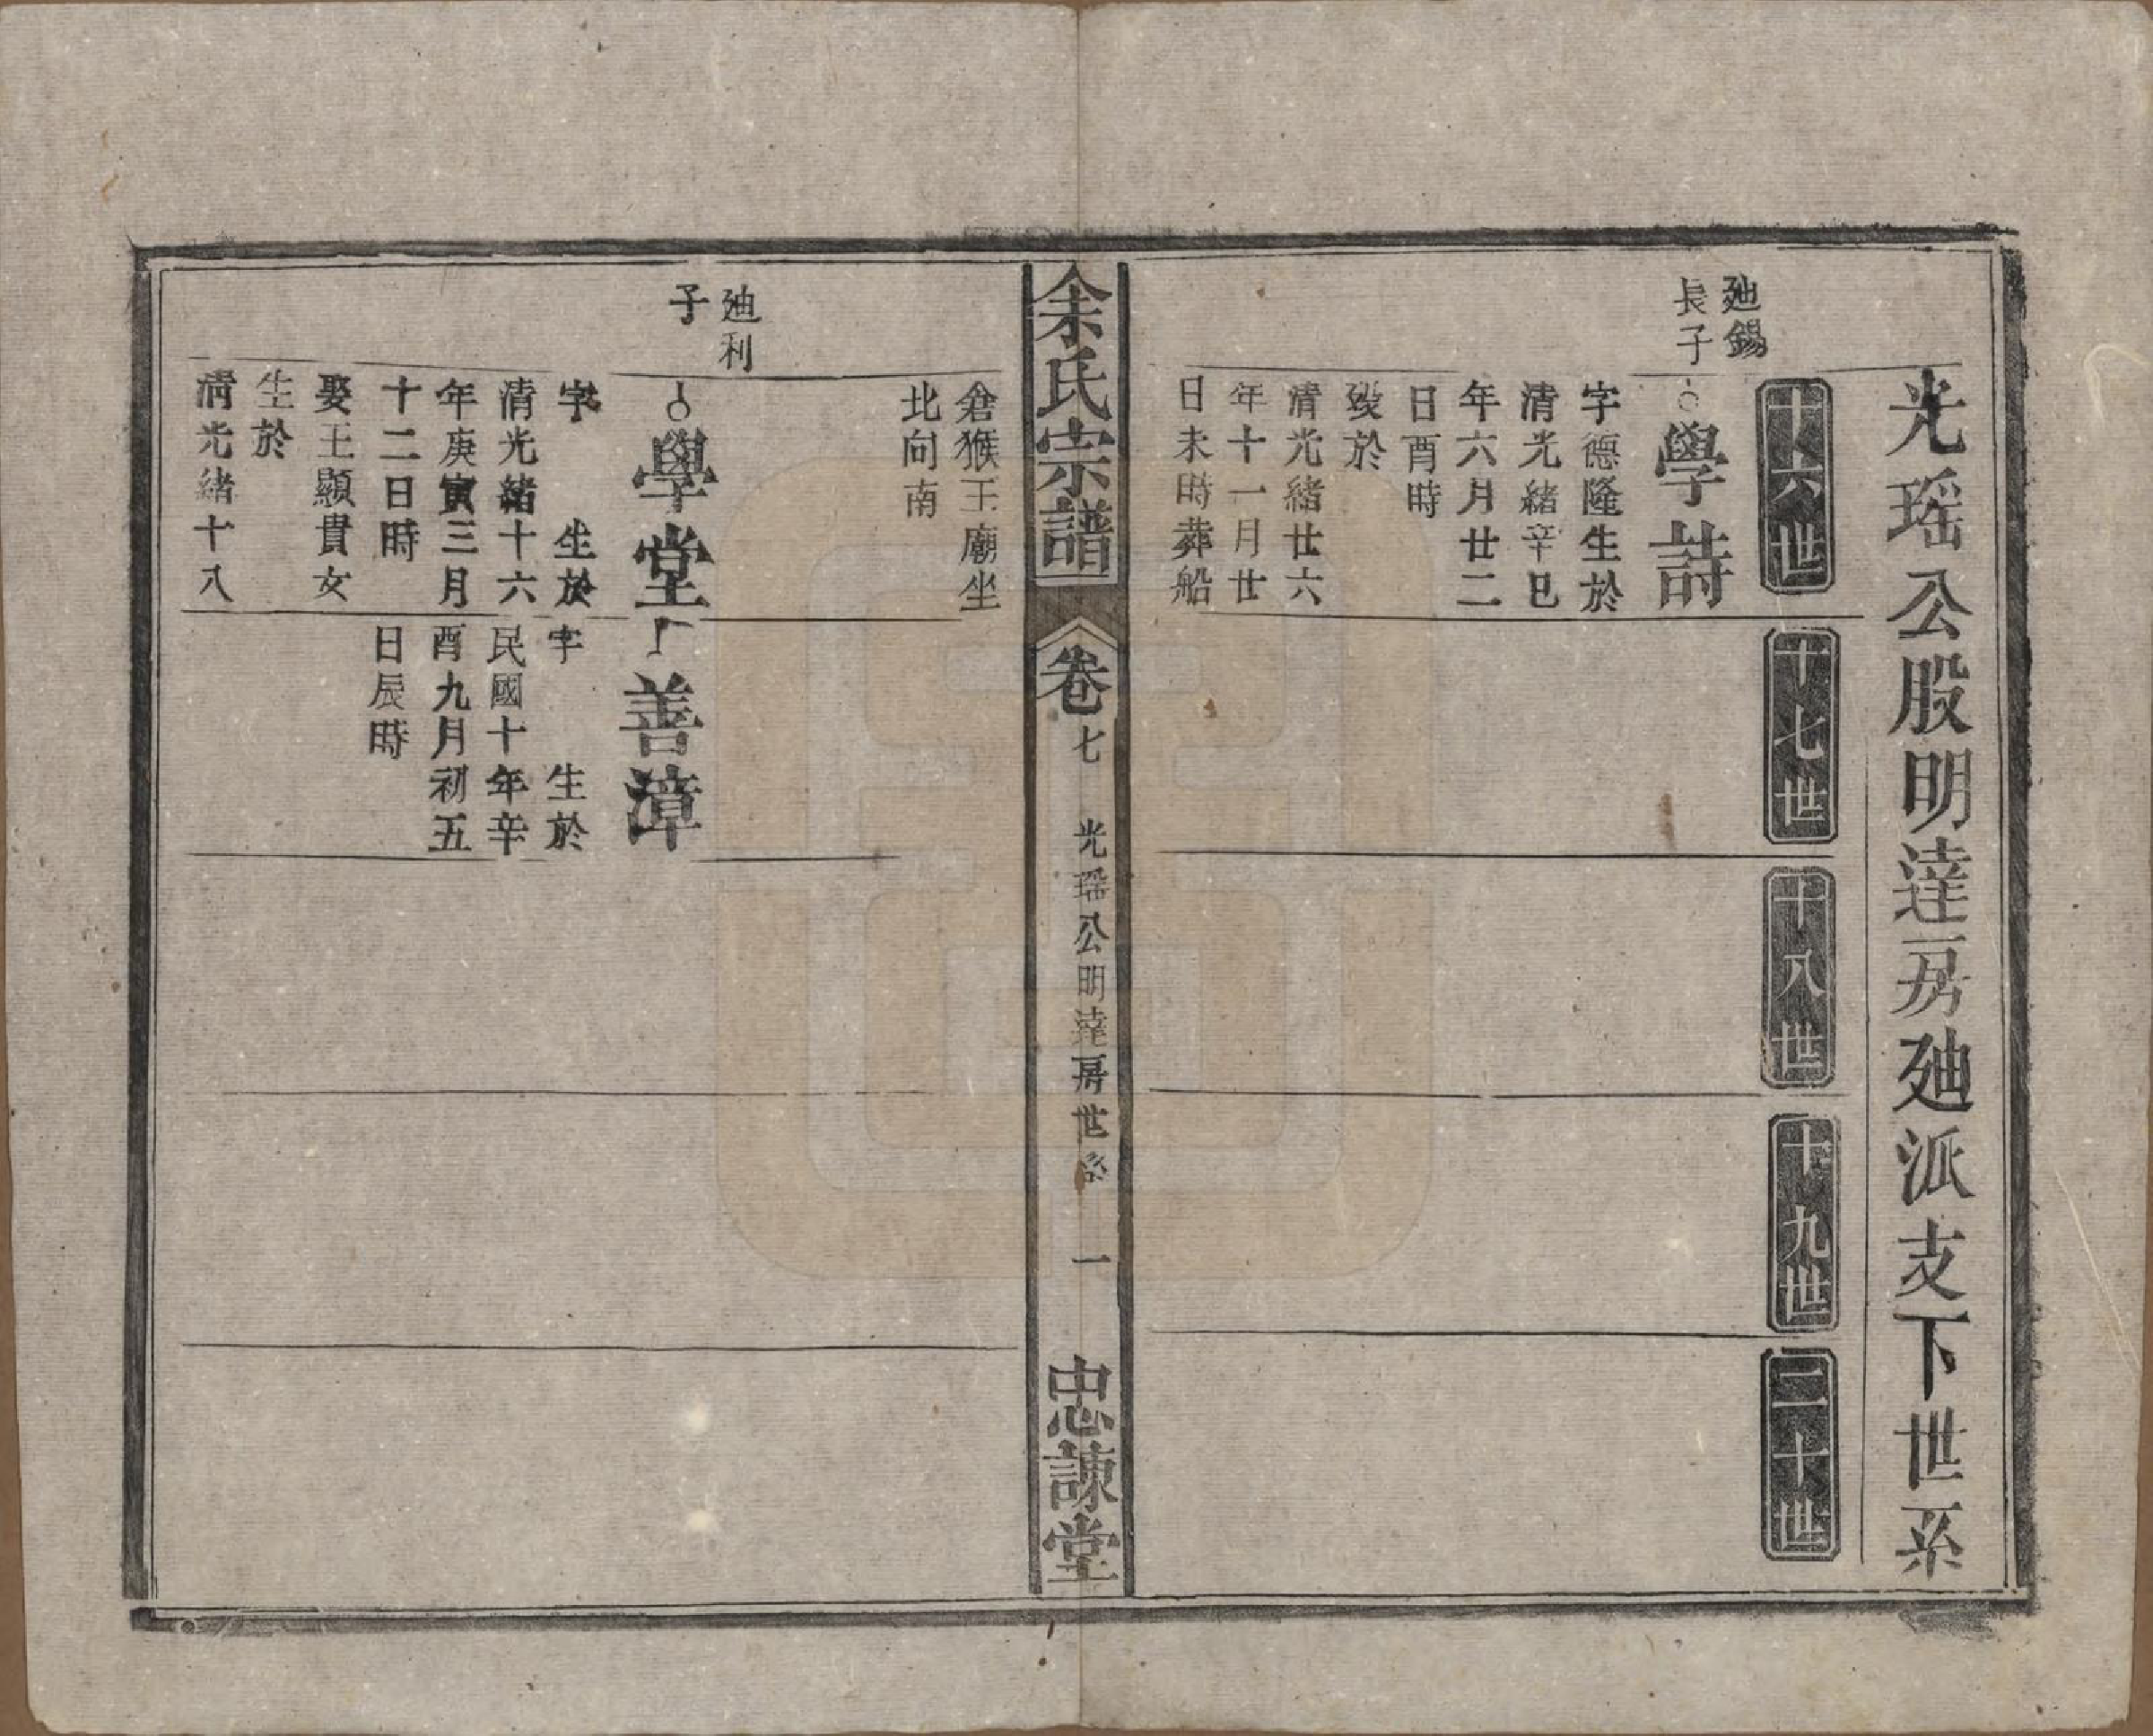 光瑶公股明達房廸派支下世系
十六世
十七世
十八世
十九世
二十世
廸錫
長子
學詩
字德隆生於
清光緒辛巳
年六月廿二
日酉時
歿於
清光緒廿六
年十一月廿
日未時葬船
余氏宗譜
卷七
光瑶公明達房世系
一
忠諫堂
倉猴王廟坐
北向南
廸利
子
學堂
字 生於
清光緒十六
年庚寅三月
十二日時
娶王顯貴女
生於
清光緒十八
善漳
字 生於
民國十年辛
酉九月初五
日辰時